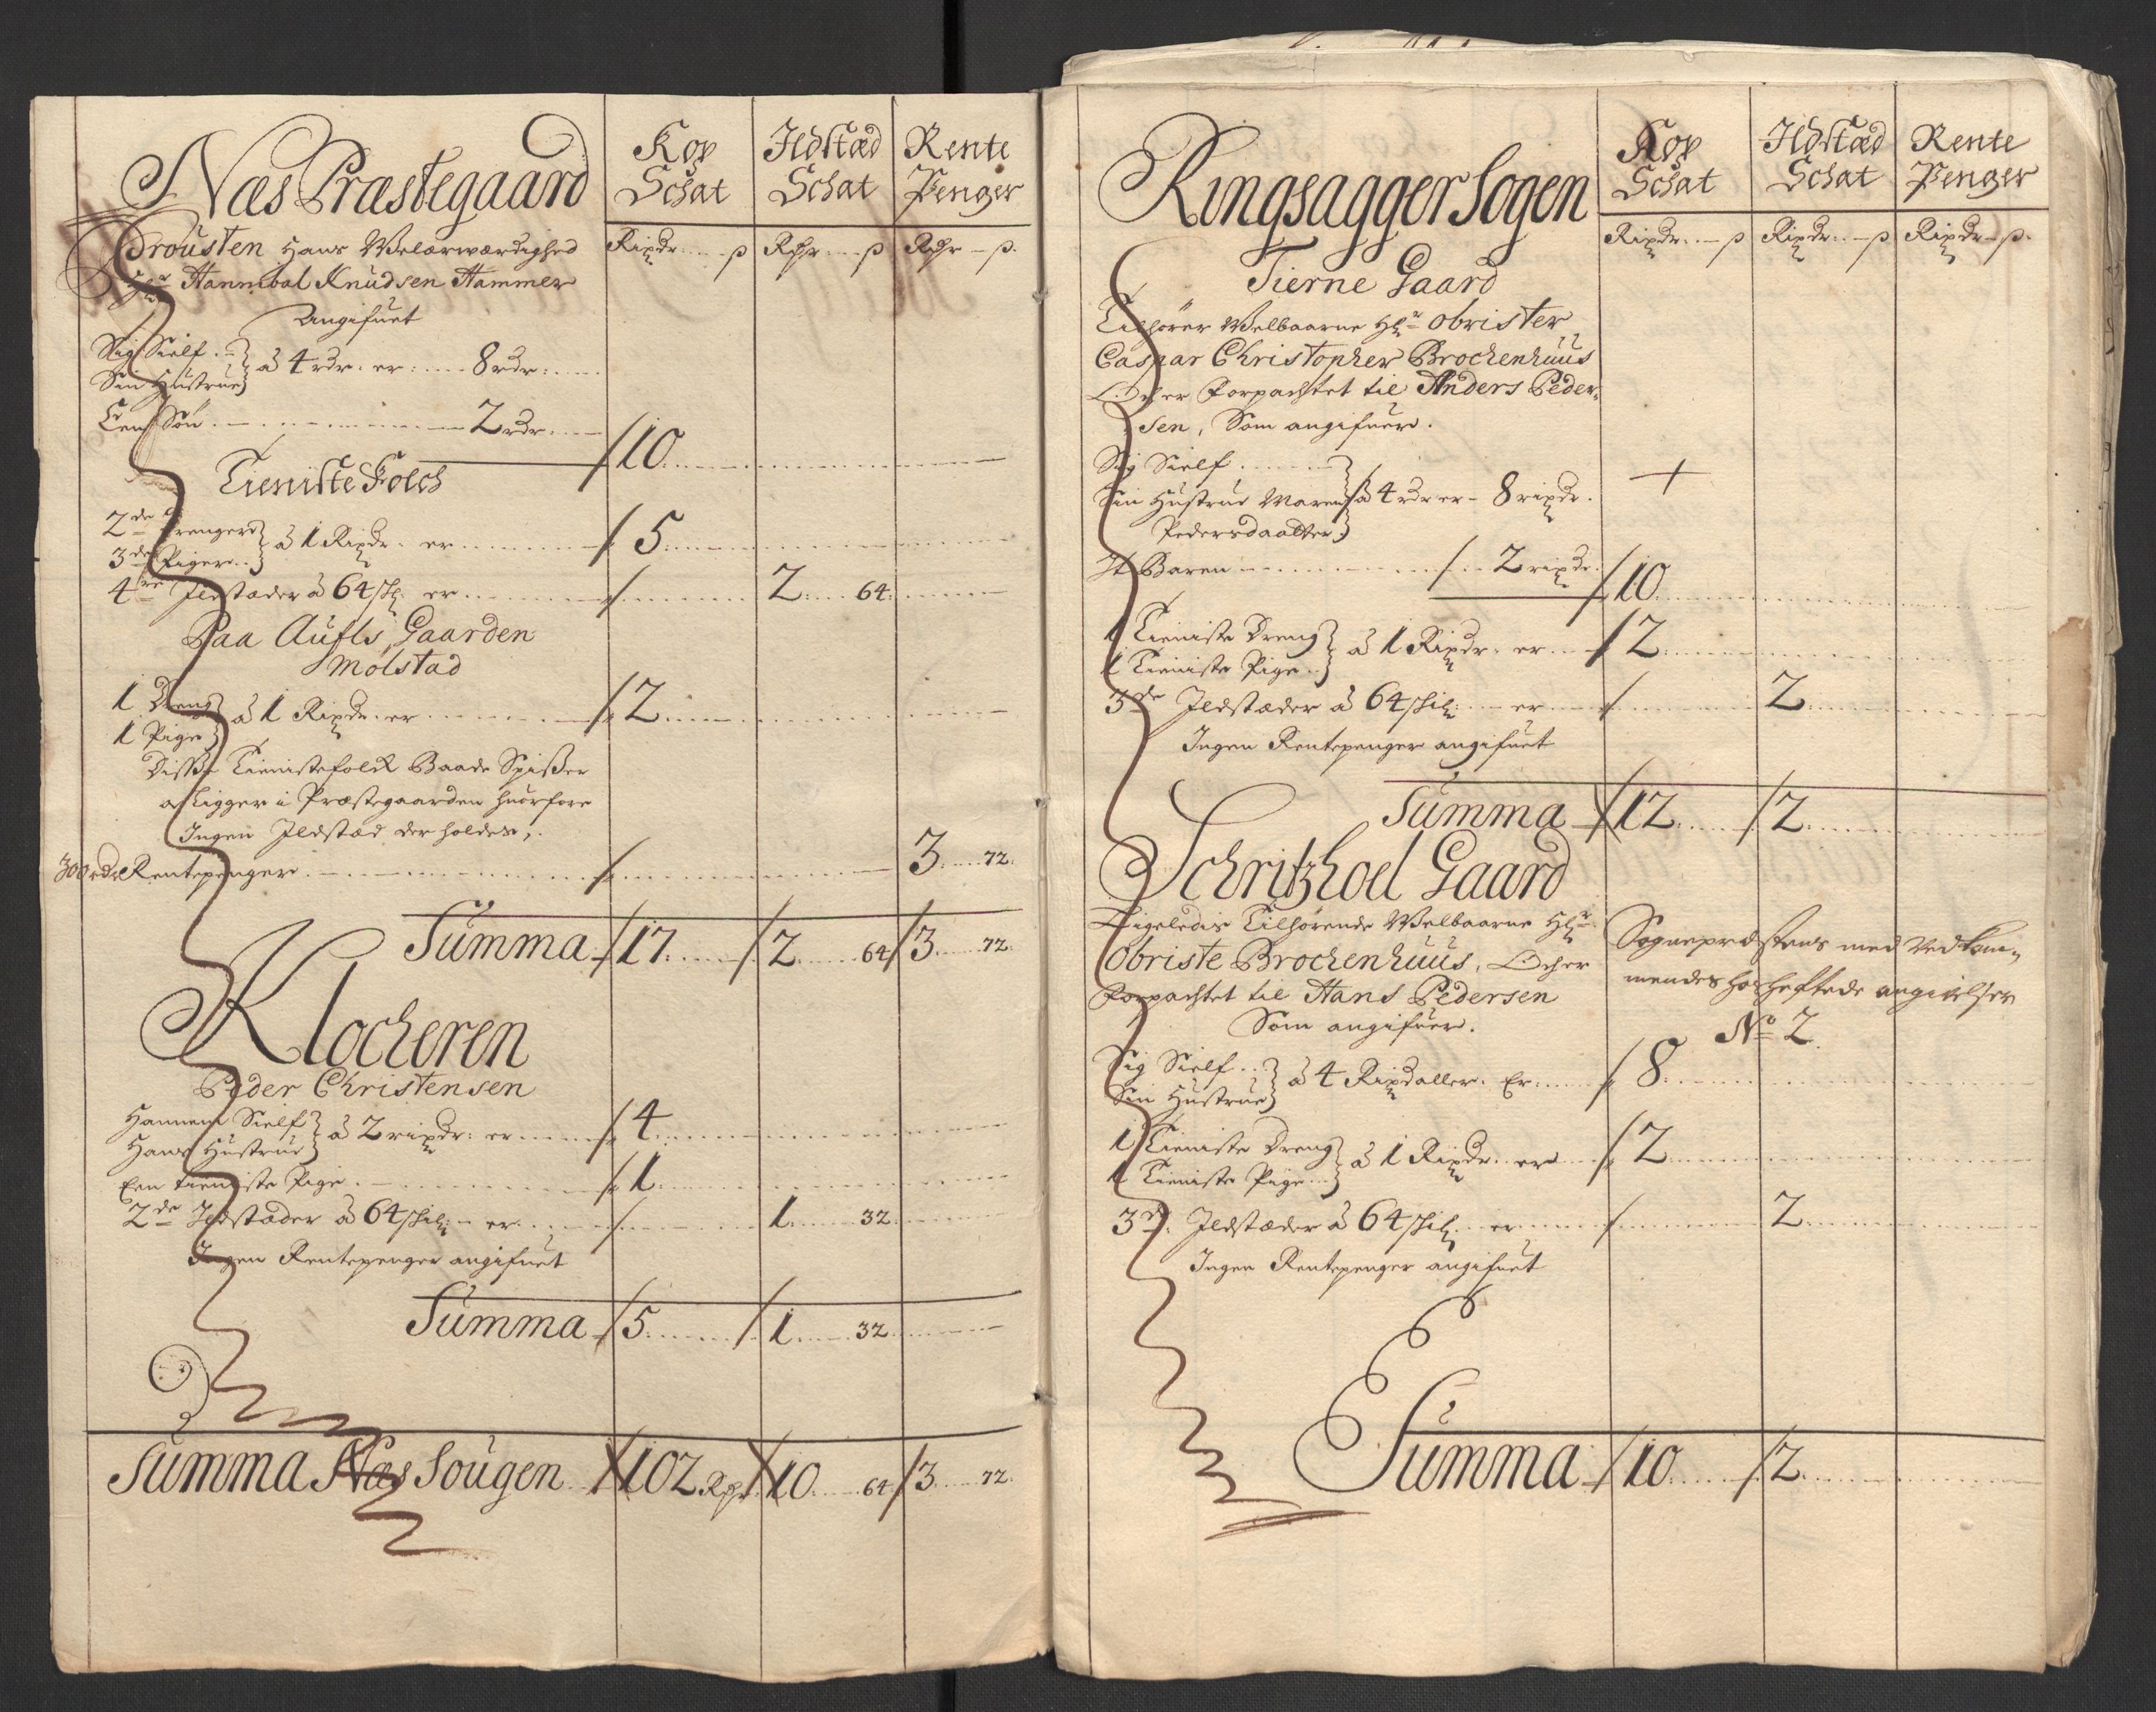 Næs Præstegaard
Kop Schat
Ildstæd Schat
Rente Penger
Prousten Hans Welærwærdighed
Hr Hannibal Knudsen Hammer
Angifuet
Rixdr ß Rdr ß Rdr ß
Sig Sielf
Sin Hustrue } â 4 rdr. er: 8 rdr:
Een Søn 2 rdr.
10
Tieniste Folch
2de Drenger
3de Piger } â 1 Rixdr. er 5
4re Ildstæder â 64 sh. er 2 64
Paa Aufls Gaarden
Molstad
1 Dreng
1 Pige } â 1 Rixdr. er 2
Disse Tienistefolck Baade Spisser
og Ligger i Præstegaarden huorfore
Ingen Ildstæd der holdes,
300 rdr Rentepenger 3 72
Summa 17 2 64 3 72
Klockeren
Peder Christensen
Hannem Sielf
Hans Hustrue } â 2 rixdr: er 4
Een tieniste Pige 1
2de Ildstæder â 64 shil: er 1 32
Ingen Rentepenger angifuet
Summa 5 1 32
Summa Næs Sougen 102 Rdr 10 64 3 72
Ringsagger Sogen
Kop Schat
Ildstæd Schat
Rente Penger
Rixdr: ß Rixdr: ß Rixdr ß
Tierne Gaard
Tilhører Welbaarne Hr Obrister
Caspar Christopher Brochenhuus
Och er Forpachtet til Anders Peder-
sen, Som angifuer.
Sig Sielf
Sin Hustrue Maren
Pedersdaatter } â 4 rdr er 8 rixdr.
It Baren 2 rixdr.
10
1 Tieniste Dreng
1 Tieniste Pige } â 1 Rixdr. er 2
3de Ildstæder â 64 shil: er 2
Ingen Rentepenger angifuet
Summa 12 2
Schritzhoel Gaard
Ligeledis Tilhørende Welbaarne Hr
Obriste Brochenhuus, Och er
Forpachtet til Hans Pedersen
Som angifuer.
Sognepræstens med Vedkom-
mendes hos heftede angivelser
No 2
Sig Sielf
Sin Hustrue } â 4 Rixdaller. Er 8
1 Tieniste Dreng
1 Tieniste Pige } â 1 Rixdr. er 2
3de Ildstæder â 64 shil: er 2
Ingen Rentepenger angifuet
Summa 10 2